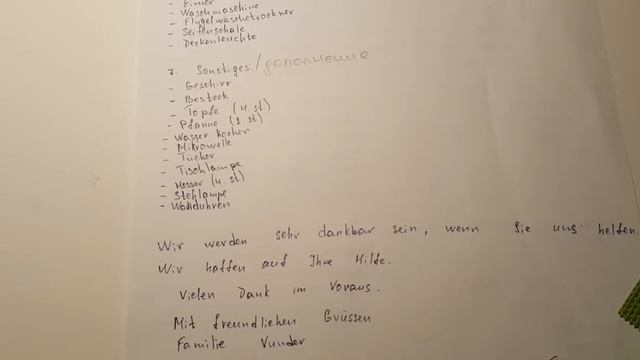 - Eimer
- Waschmaschine
- Flügelwäschetrockner
- Seifenschale
- Deckenleuchte
7. Sonstiges:/дополнение
- Geschirr
- Besteck
- Töpfe (4. st)
- Pfanne (1. st)
- Wasser kocher
- Mikrowelle
- Tücher
- Tischlampe
- Messer (4. st)
- Stehlampe
- Wanduhren
Wir werden sehr dankbar sein, wenn Sie uns helfen.
Wir hoffen auf Ihre Hilfe.
Vielen Dank im Voraus.
Mit freundlichen Grüssen
Familie Vunder